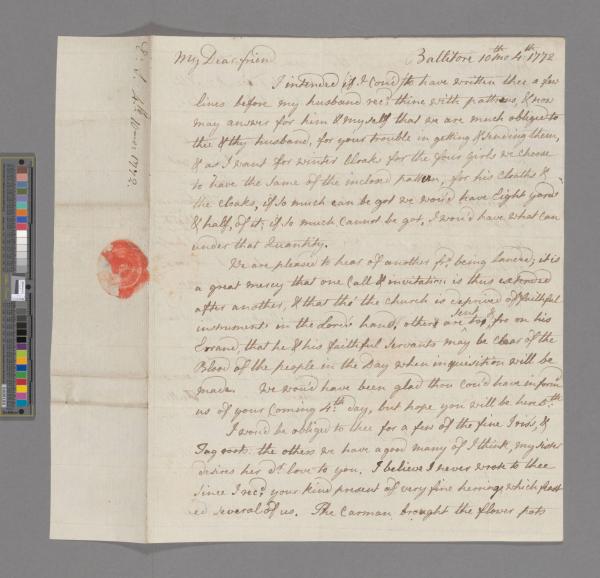 My Dear friend Ballitore 10th mo 4th 1772
I intended if I cou'd to have written thee a few
lines before my husband recd. thine with pattrns, & now
may answer for him & myself that we are much obliged to
thee & thy husband, for your trouble in getting & sending them,
& as I want for winter Cloaks for the four Girls we choose
to have the same of the inclosed pattern, for his Cloaths &
the Cloaks, if so much can be got we wou'd have Eight yards
& half, of it; if so much Cannot be got, I wou'd have what Can
under that Quantity.
We are pleased to hear of another being landed, it is
a great mercy that one Call & invitation is thus extended
after another, & that tho' the Church is deprived of faithful
instruments in the Lord's hand, others are sent to & fro on his
Errand, that he & his faithful Servants may be Clear of the
Blood of the people in the Day when inquisition will be
made. We wou'd have been glad thou Cou'd have inform
us of your Coming 4th day, but hope you will be here 5th
I wou'd be obliged to thee for a few of the fine Iriss, &
Fag root. the others we have a good many of I think, my Sister
desires her dr. love to you. I believe I never wrote to thee
Since I recd. your kind present of very fine herrings which feast
ed several of us. The Carman brought the flower pots
E. S. 4th 10mo 1772